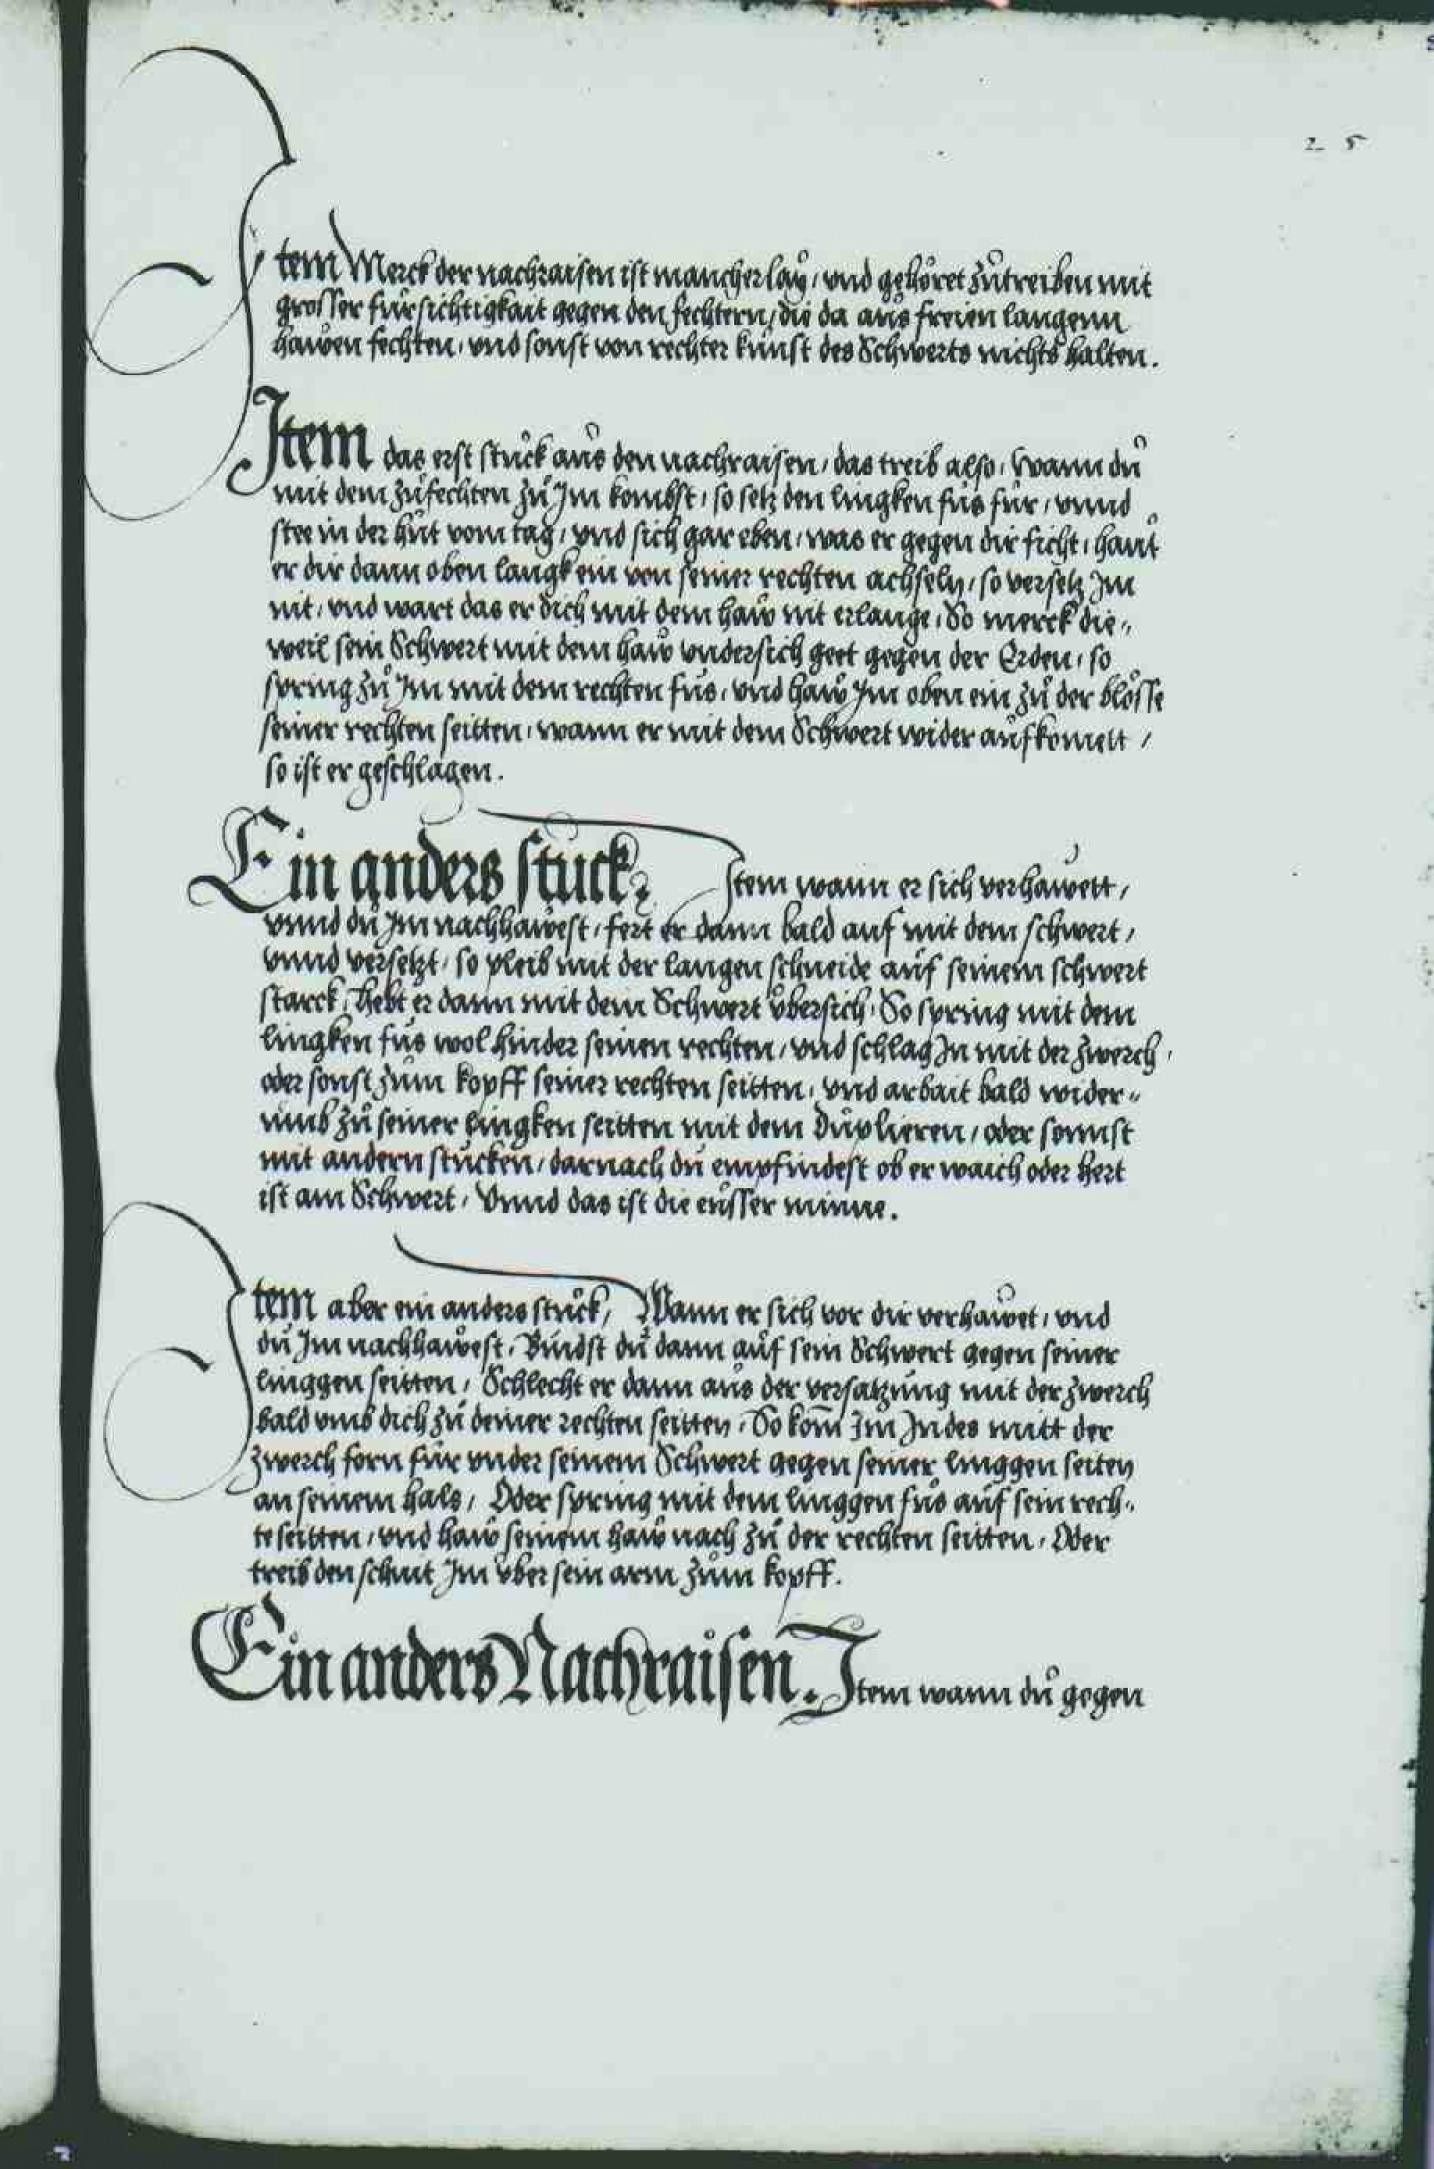 25
Item Merck der nachraisen ist mancherlaÿ, vnd gehöret zůtreiben mit
grosser fürsichtigkait gegen den fechtern, die da aůs freien langenn
hawen fechten, vnd sonst von rechter kůnst des Schwerts nichts halten.
Item das erst stůck aůs den nachraisen, das treib also, Wann dů
mit dem zůfechten zů Im kombst, so setz den lingken fůs fůr, vnnd
stee in der hůt vom tag, vnd sich gar eben, was er gegen dir ficht, haůt
er dir dann oben langk ein von seiner rechten achseln, so versetz Im
nit, vnd wart das er dich mit dem haw nit erlange, So merck die„
weil sein Schwert mit dem haw vndersich geet gegen der Erden, so
spring zů Im mit dem rechten fůs, vnd haw Im oben ein zů der blösse
seiner rechten seitten, wann er mit dem Schwert wider aůfkomett /
so ist er geschlagen.
Ein anders stůck. Item wann er sich verhawett,
vnnd dů Im nachhawest, fert er dann bald auf mit dem schwert,
vnnd versetzt, so pleib mit der langen schneide aůf seinem schwert
starck, hebt er dann mit dem Schwert vbersich, So spring mit dem
lingken fůs wol hinder seinen rechten, vnd schlag In mit der zwerch,
oder sonst zům kopff seiner rechten seitten, vnd arbait bald wider„
ůmb zů seiner lingken seitten mit dem Důplieren, oder sonnst
mit andern stůcken, darnach dů empfindest ob er waich oder hert
ist am Schwert, Vnnd das ist die eůsser minne.
Item aber ein anders stůck, Wann er sich vor dir verhawet, vnd
dů Im nachhawest, Bindst dů dann aůf sein Schwert gegen seiner
linggen seitten, Schlecht er dann aůs der versatzůng mit der zwerch
bald vmb dich zů deiner rechten seitten, So kom̄ Im Indes mitt der
zwerch forn fůr vnder seinem Schwert gegen seiner linggen seiten
an seinem hals, Oder spring mit dem linggen fůs aůf sein rech„
te seitten, vnd haw seinem haw nach zů der rechten seitten, Oder
treib den schnit Im vber sein arm zům kopff.
Ein anders Nachraisen. Item wann dů gegen